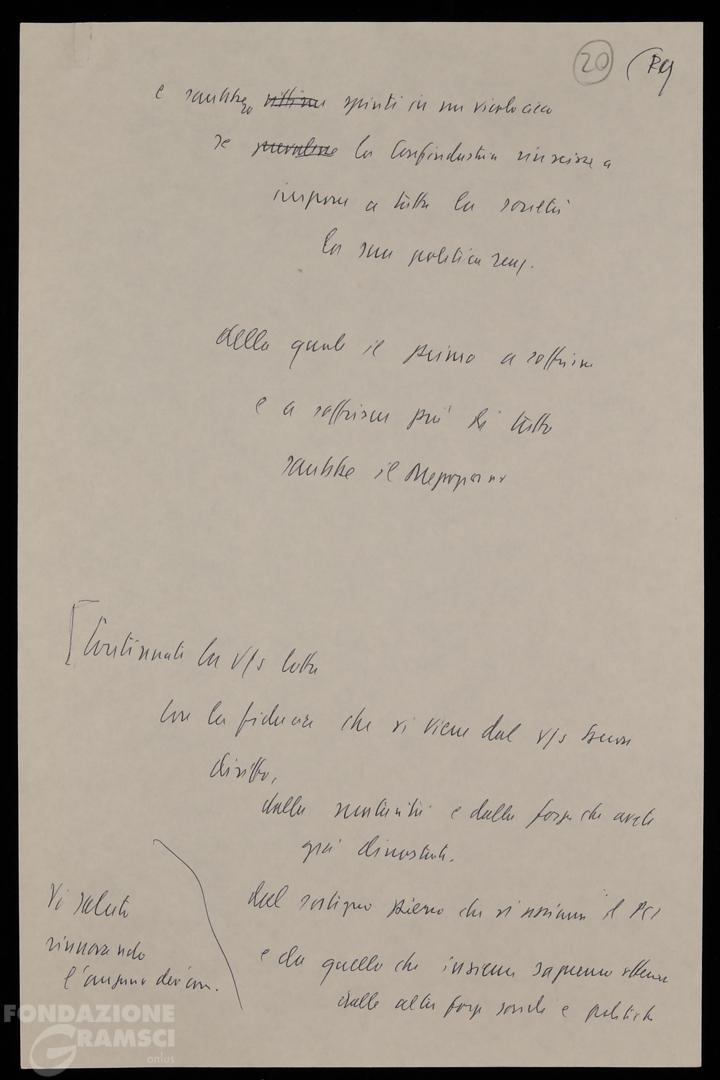 20
e sarebbero spinti in un vicolo cieco
se la Confindustria riuscisse a
imporre a tutta la società
la sua politica
della quale il primo a soffrire
e a soffrirne più di tutto
sarebbe il Mezzogiorno
[Continuate la v/s lotta
con la fiducia che vi viene dal v/s buon
diritto,
dalla maturità e dalla forza che avete
già dimostrato.
dal sostegno pieno che vi il PCI
e da quello che insieme sapremo ottenere
dalle altre forze sociali e politiche
Vi saluto
rinnovando
l'augurio
FONDAZIONE
GRAMSCI
onlus